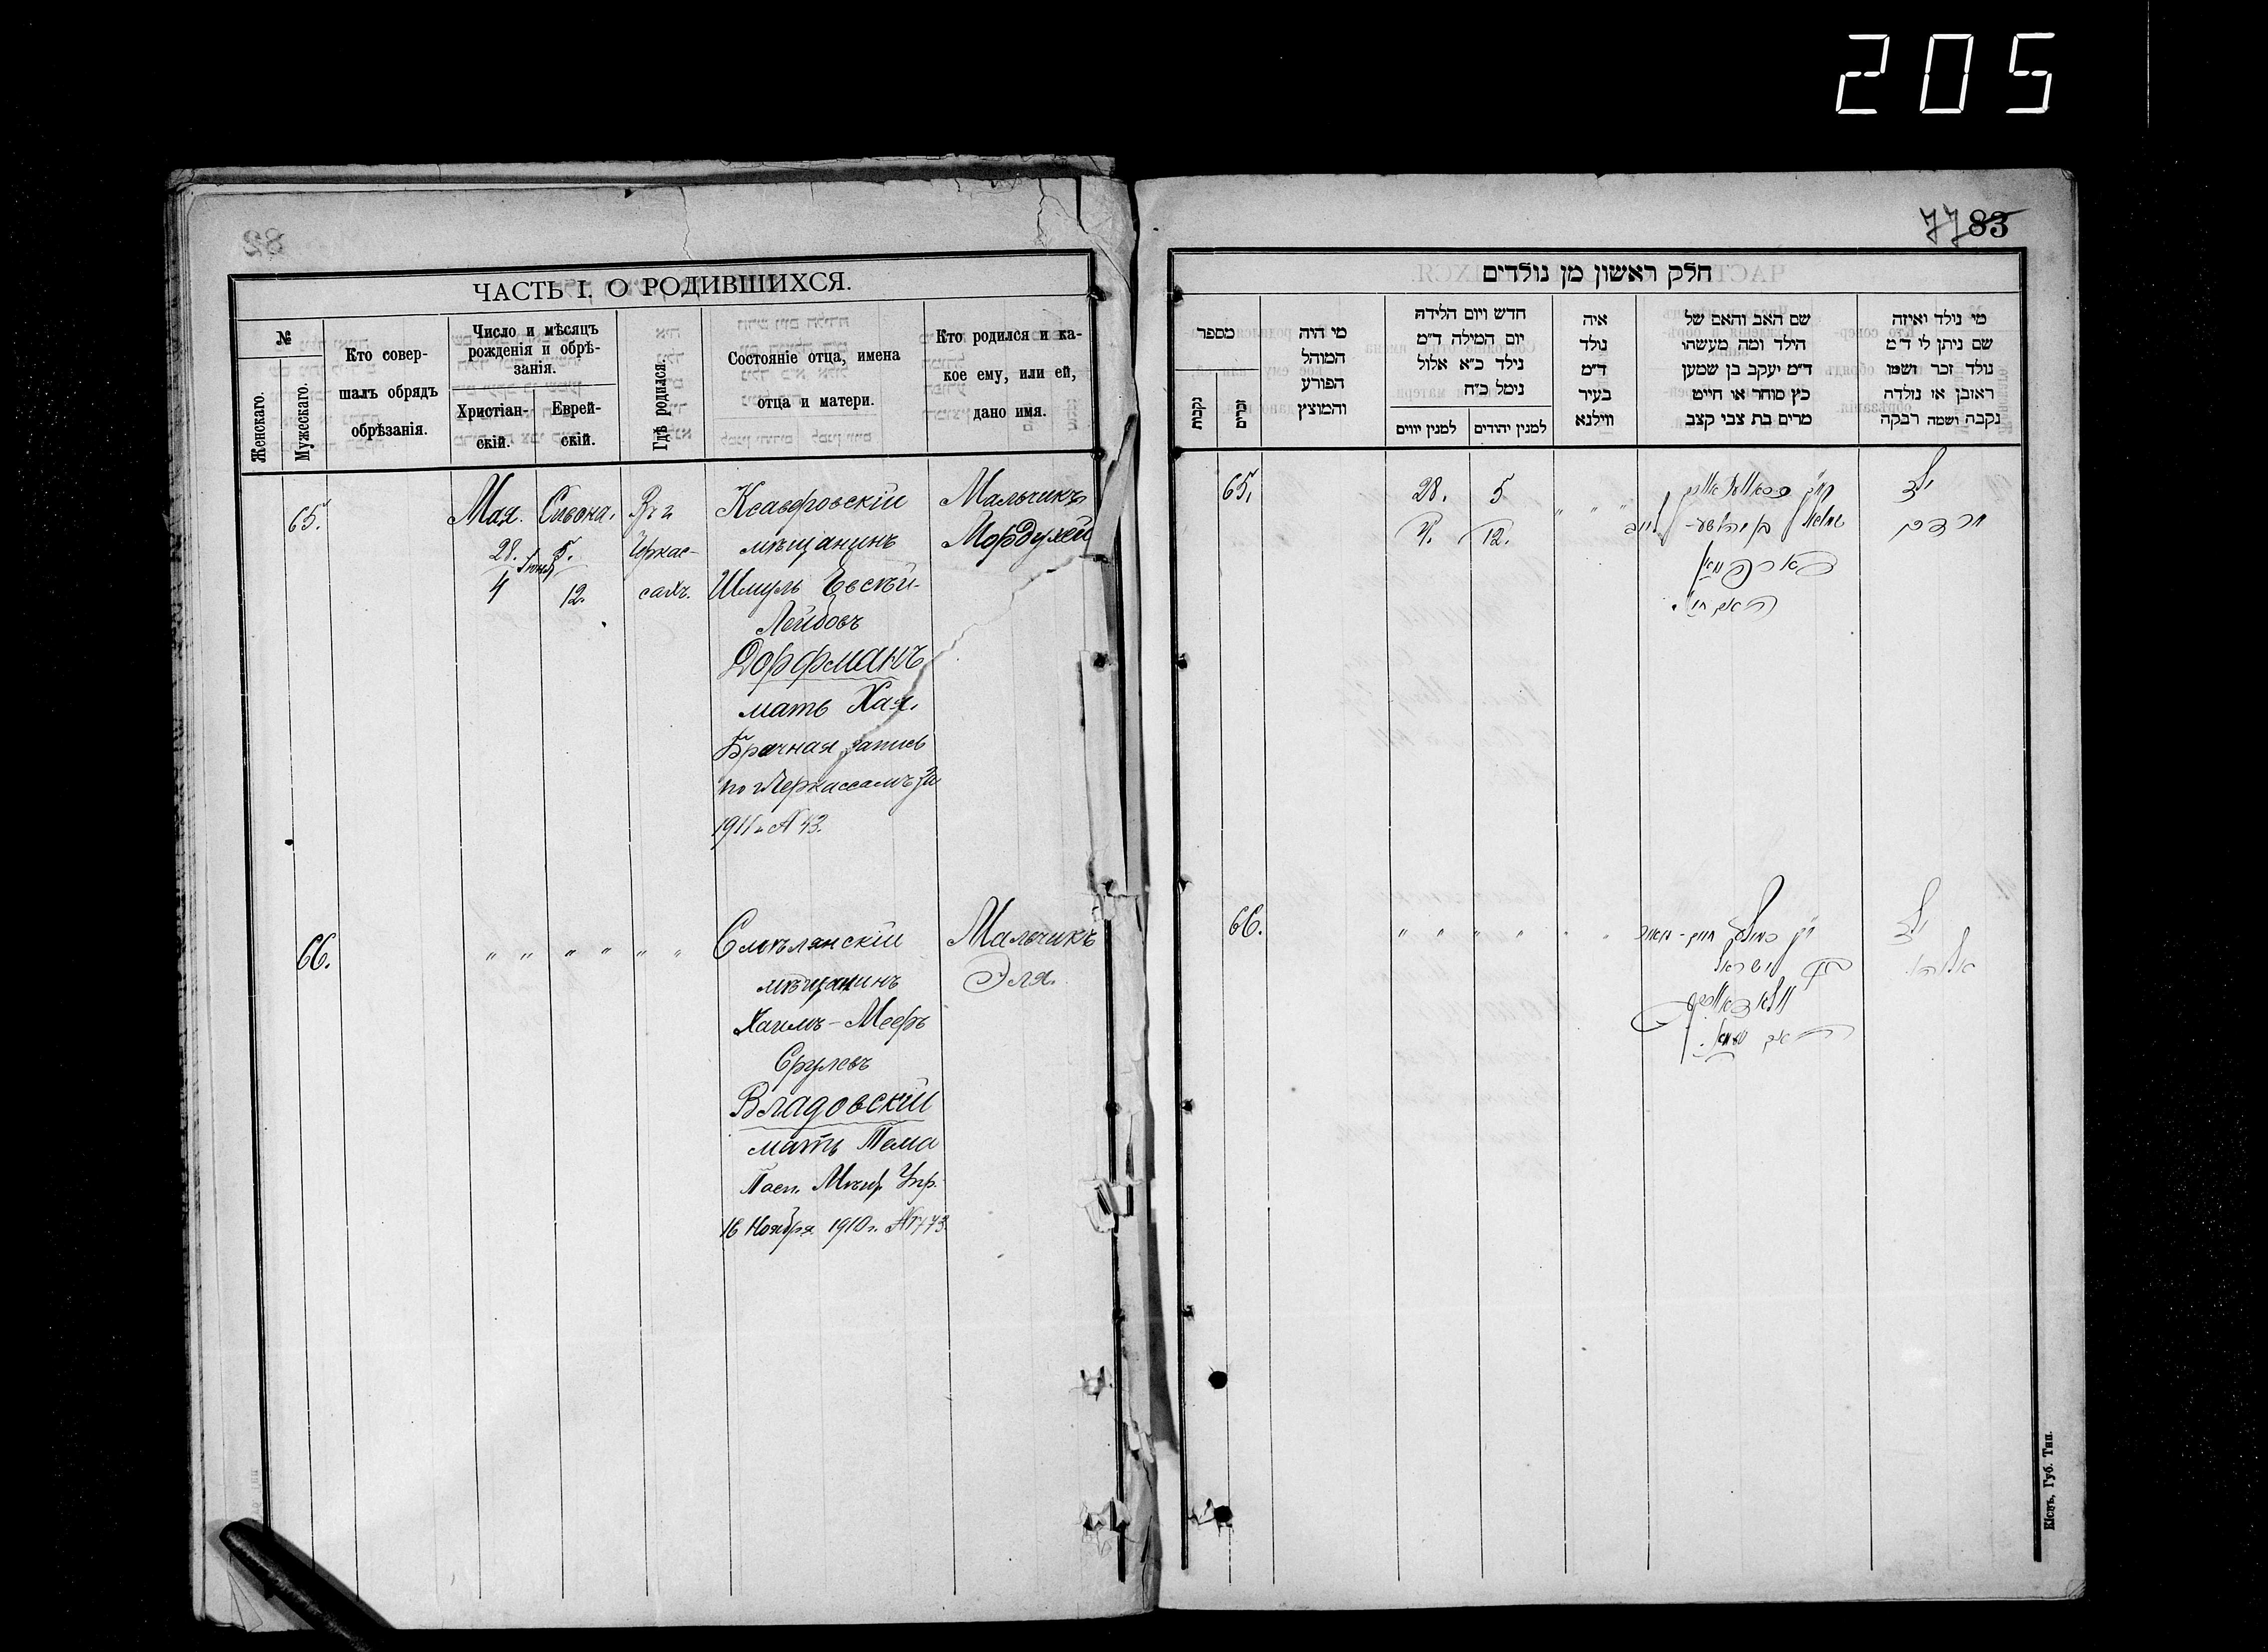 205
ЧАСТЬ I. О РОДИВШИХСЯ.
№
Женскаго.
Мужескаго.
Кто совер-
шалъ обрядъ
обрѣзанія.
Число и мѣсяцъ
рожденія и обрѣ-
занія.
Христіан-
скій.
Еврей-
скій.
Гдѣ родился.
Состояніе отца, имена
отца и матери.
Кто родился и ка-
кое ему, или ей,
дано имя.
65.
Мая.
28. Іюня
4
Сивона.
5.
12.
Въ г.
Черкас-
сахъ.
мѣщанинъ
Шмуль Евсѣй-
Лейбовъ
Дорфманъ
мать Хая.
Брачная запись
по г. Черкассамъ за
1911 г. № 43.
Мальчикъ
Мордухей
66.
" " " " " "
Смѣлянскій
мѣщанинъ
Хаимъ-Мееръ
Срулевъ
Владовскій
мать Тема
Пасп. Мѣщ. Упр.
16 Ноября 1910 г. № 773
Мальчикъ
Эля.
77 83
חלק ראשון מן נולדים
מספר
נקבות
זכרים
מי היה
המוהל
הפורע
והמוצץ
חדש ויום הלידה
יום המילה ד״מ
נילד כ״א אלול
נימל כ״ח
למנין יווים
למנין יהודים
איה
נולד
ד״מ
בעיר
ווילנא
שם האב והאם של
הילד ומה מעשהו
ד״מ יעקב בן שמען
כץ סוחר או חייט
מרים בת צבי קצב
מי נולד ואיזה
שם ניתן לו ד״מ
נולד זכר ושמו
ראובן או נולדה
נקבה ושמה רבקה
65.
28.
4.
5
12.
" " "
ילד
מרדכי
66.
" " " " " "
ישראל
ילד
אליהו
Кіевъ, Губ. Тип.